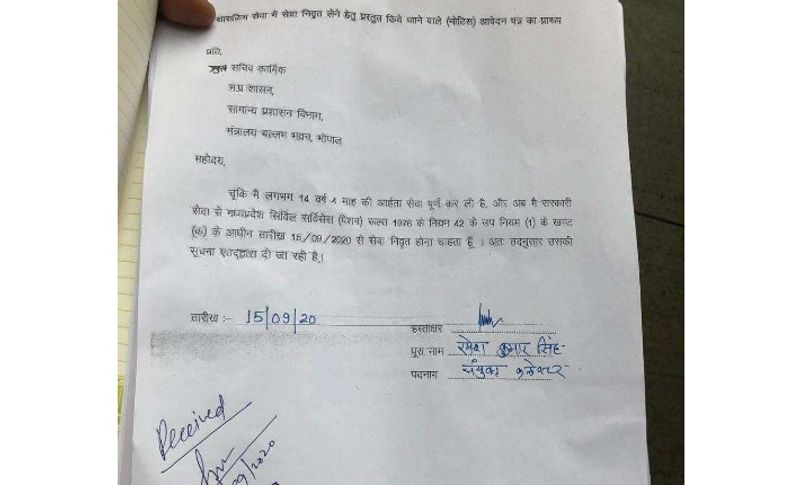 शासकिय सेवा में सेवा निवृत लेने हेतु प्रस्तुत किये जाने वाले (नोटिस) आवेदन पत्र का प्रारूप
प्रति,
सचिव कार्मिक
म.प्र शासन,
सामान्य प्रशासन विभाग,
मंत्रालय बल्लभ भवन, भोपाल
महोदय,
चूंकि मै लगभग 14 वर्ष 4 माह की आर्हता सेवा पूर्ण कर ली है, और अब मै सरकारी
सेवा से मध्यप्रदेश सिर्विल सर्विसेस (पेंशन) रूल्स 1976 के नियम 42 के उप नियम (1) के खण्ड
(क) के आधीन तारीख 15/09/2020 से सेवा निवृत होना चाहता हूँ । अतः तदनुसार उसकी
सूचना एतद्द्वारा दी जा रही है।
तारीख :- 15/09/20
हस्ताक्षर
पूरा नाम रमेश कुमार सिंह
पदनाम संयुक्त कलेक्टर
Received
09/2020